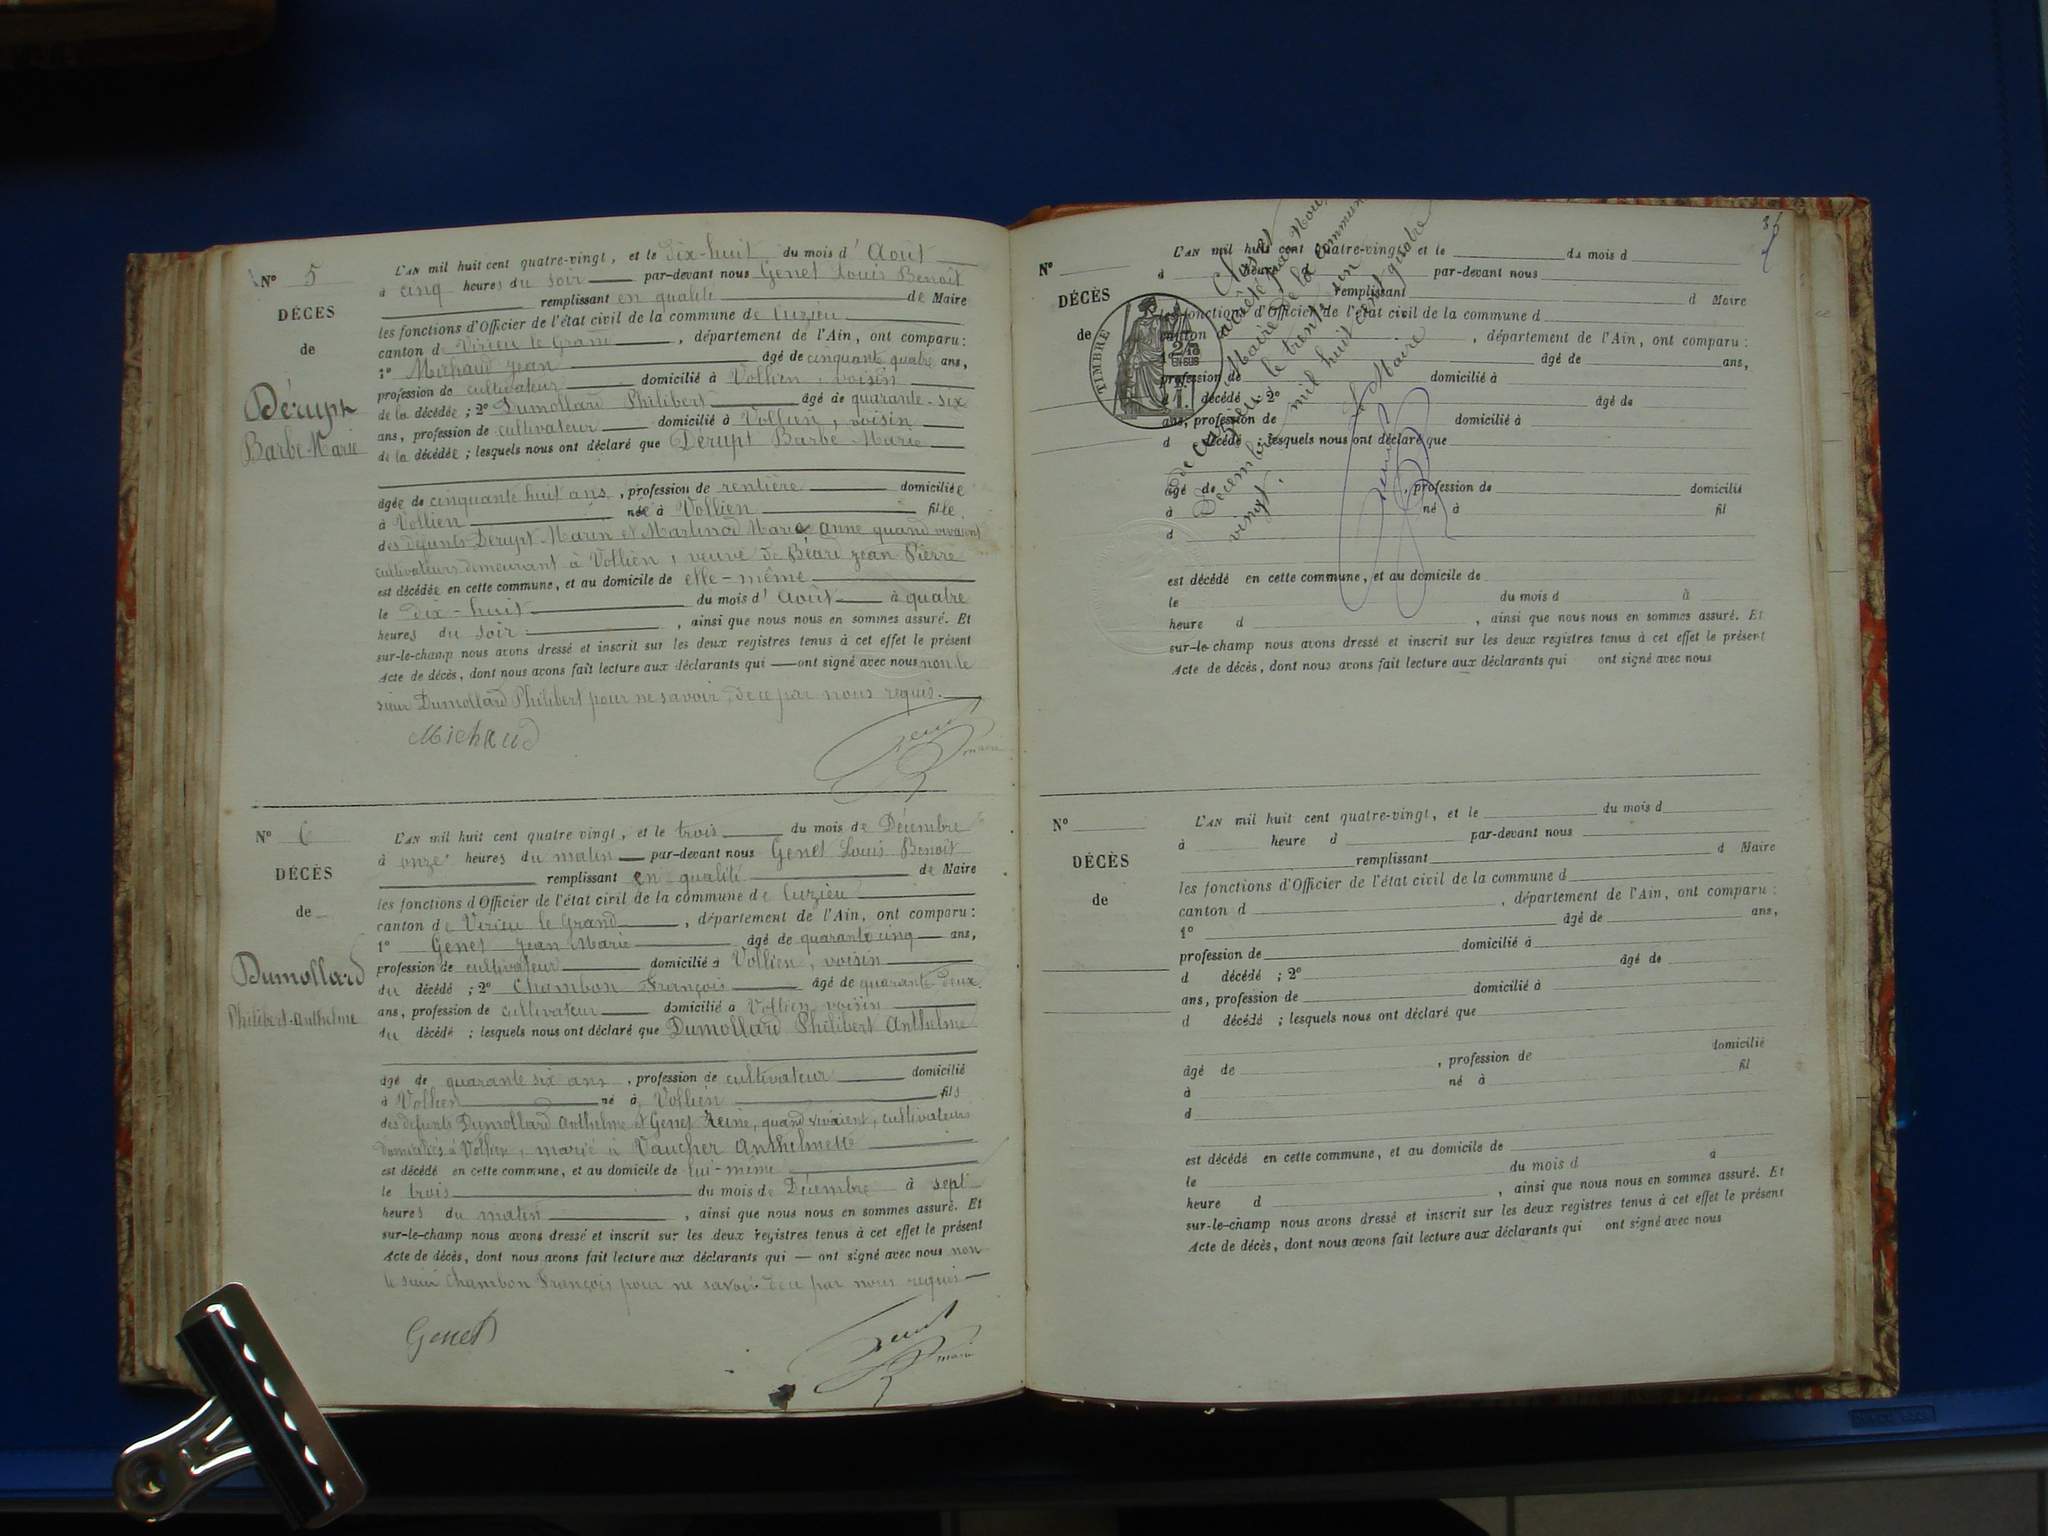 N° 5
DÉCÈS
de
Dérupt
Barbe-Marie
L'AN mil huit cent quatre-vingt, et le dix-huit du mois d'Août
à cinq heures du soir par-devant nous Genet Louis Benoit
remplissant en qualité de Maire
les fonctions d'Officier de l'état civil de la commune de Cuzieu
canton de Virieu le Grand, département de l'Ain, ont comparu :
1° Michaud Jean âgé de cinquante quatre ans,
profession de cultivateur domicilié à Vollien, voisin
de la décédée ; 2° Dumollard Philibert âgé de quarante-six
ans, profession de cultivateur domicilié à Vollien, voisin
de la décédée ; lesquels nous ont déclaré que Dérupt Barbe Marie
âgée de cinquante huit ans, profession de rentière domiciliée
à Vollien née à Vollien fille
des défunts Dérupt Marin et Martinod Marie Anne quand vivaient
cultivateurs demeurant à Vollien, veuve de Béard Jean Pierre
est décédée en cette commune, et au domicile de elle-même
le dix-huit du mois d'Août à quatre
heures du soir, ainsi que nous nous en sommes assuré. Et
sur-le-champ nous avons dressé et inscrit sur les deux registres tenus à cet effet le présent
Acte de décès, dont nous avons fait lecture aux déclarants qui — ont signé avec nous non le
sieur Dumollard Philibert pour ne savoir, de ce par nous requis.
Michaud
Genet
maire
N° 6
DÉCÈS
de
Dumollard
Philibert-Anthelme
L'AN mil huit cent quatre vingt, et le trois du mois de Décembre
à onze heures du matin par-devant nous Genet Louis Benoit
remplissant en qualité de Maire
les fonctions d'Officier de l'état civil de la commune de Cuzieu
canton de Virieu le Grand, département de l'Ain, ont comparu :
1° Genet Jean Marie âgé de quarante cinq ans,
profession de cultivateur domicilié à Vollien, voisin
du décédé ; 2° Chambon François âgé de quarante deux
ans, profession de cultivateur domicilié à Vollien, voisin
du décédé ; lesquels nous ont déclaré que Dumollard Philibert Anthelme
âgé de quarante six ans, profession de cultivateur domicilié
à Vollien né à Vollien fils
des défunts Dumollard Anthelme et Genet Reine, quand vivaient, cultivateurs
domiciliés à Vollien, marié à Vaucher Anthelmette
est décédé en cette commune, et au domicile de lui-même
le trois du mois de Décembre à sept
heures du matin, ainsi que nous nous en sommes assuré. Et
sur-le-champ nous avons dressé et inscrit sur les deux registres tenus à cet effet le présent
Acte de décès, dont nous avons fait lecture aux déclarants qui — ont signé avec nous non
le sieur Chambon François pour ne savoir de ce par nous requis
Genet
Genet
maire
N°
DÉCÈS
de
TIMBRE
L'AN mil huit cent quatre-vingt, et le du mois d
à heure d par-devant nous
remplissant d Maire
les fonctions d'Officier de l'état civil de la commune d
canton d, département de l'Ain, ont comparu :
1° âgé de ans,
profession de domicilié à
d décédé ; 2° âgé de
ans, profession de domicilié à
d décédé ; lesquels nous ont déclaré que
âgé de, profession de domicilié
à né à fil
d
est décédé en cette commune, et au domicile de
le du mois d à
heure d, ainsi que nous nous en sommes assuré. Et
sur-le-champ nous avons dressé et inscrit sur les deux registres tenus à cet effet le présent
Acte de décès, dont nous avons fait lecture aux déclarants qui ont signé avec nous
Clos et
arrêté par Nous,
Maire de la commune
de Cuzieu le trente un
Décembre mil huit cent quatre
vingt.
Le Maire
Genet
N°
DÉCÈS
de
L'AN mil huit cent quatre-vingt, et le du mois d
à heure d par-devant nous
remplissant d Maire
les fonctions d'Officier de l'état civil de la commune d
canton d, département de l'Ain, ont comparu :
1° âgé de ans,
profession de domicilié à
d décédé ; 2° âgé de
ans, profession de domicilié à
d décédé ; lesquels nous ont déclaré que
âgé de, profession de domicilié
à né à fil
d
est décédé en cette commune, et au domicile de
le du mois d à
heure d, ainsi que nous nous en sommes assuré. Et
sur-le-champ nous avons dressé et inscrit sur les deux registres tenus à cet effet le présent
Acte de décès, dont nous avons fait lecture aux déclarants qui ont signé avec nous